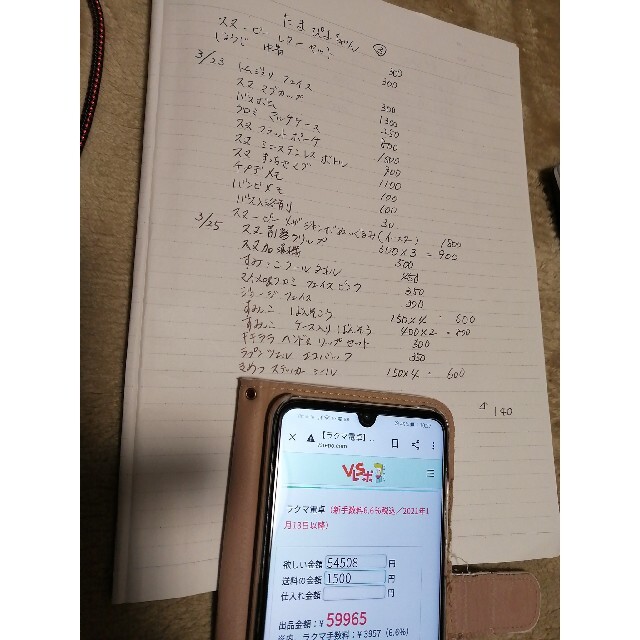 たまぴよちゃん ③
スヌーピー レターセット 300
しまうじ 巾着 300
3/23 トムジェリ フェイス 300
スヌ マグカップ 1300
バスボム 250
クロミ マルチケース 600
スヌ フラットポーチ 1500
スヌ ミニステンレスボトル 900
1100
チップデメモ 100
バンビメモ 100
バス入浴剤 30
3/25 スヌーピー ぬいぐるみ(イースター) 1800
スヌ 前髪クリップ 300×3=900
スヌ加湿器 500
すみっこ クールタオル 450
マイメロクロミ フェイスピンク 350
ジョージ フェイス
すみっこ ばんそうこう 150×4=600
すみっこ ケース入りばんそう 400×2=800
キキララ ハンド&リップセット 300
ラプンツェル エコバッグ 350
きめつ ステッカーシール 150×4=600
↑140
× 【ラクマ電卓】...
VLSポ
ラクマ電卓(新手数料6.6%税込/2021年1
月13日以降)
欲しい金額 54508 円
送料の金額 1500 円
仕入れ金額 円
出品金額:¥59965
※内、ラクマ手数料:¥3957(6.6%)